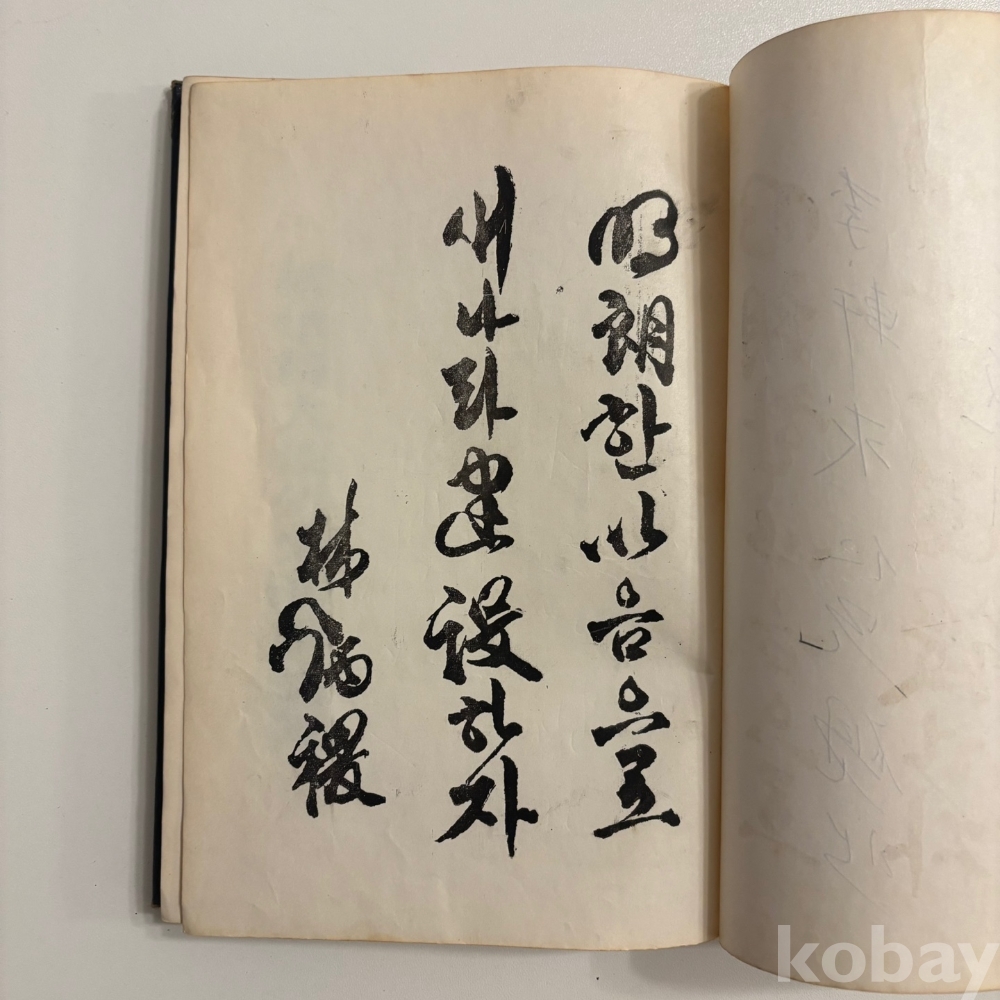 明朗한 마음으로
새나라 建設하자
林炳稷
kobay